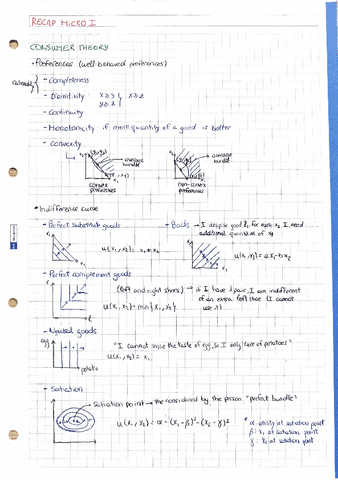 RECAP MICRO I
CONSUMER THEORY
• Preferences (well-behaved preferences)
rationality { - Completeness
- Transitivity : x ≥ y } x ≥ z
y ≥ z
- Continuity
- Monotonicity if more quantity of a good is better
- Convexity
average bundle
average bundle
convex preferences
non-convex preferences
• Indifference curve
- Perfect substitute goods
u(x₁, x₂) = x₁ + x₂
- Bads → I despise good x₂ for each x₂ I need
additional quantities of x₁
u(x₁, x₂) = a x₁ - b x₂
- Perfect complement goods
(left and right shoes) → if I have 1 pair, I am indifferent
of an extra left shoe (I cannot
use it)
u(x₁, x₂) = min{x₁, x₂}
- Neutral goods
egg
potato
"I cannot smell the taste of egg, so I only care of potatoes"
u(x₁, x₂) = x₁
- Satiation
Satiation point → the considered by the person "perfect bundle"
u(x₁, x₂) = α - (x₁ - β)² - (x₂ - γ)²
* α: utility at satiation point
β: x₁ at satiation point
γ: x₂ at satiation point